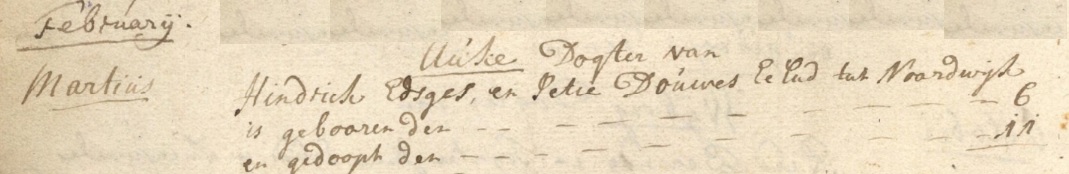 Februarij.
Auke Dogter van
Martius Hindrich Edsges, en Petie Douwes EeLud tut Noordwijk
is gebooren den - - - - - - - - - 6
en gedoopt den - - - - - - - - - 11